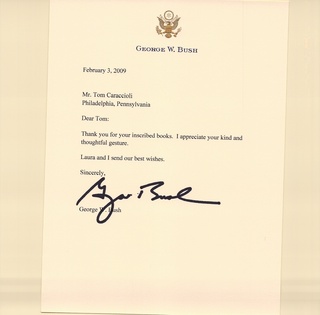 GEORGE W. BUSH
February 3, 2009
Mr. Tom Caraccioli
Philadelphia, Pennsylvania
Dear Tom:
Thank you for your inscribed books. I appreciate your kind and
thoughtful gesture.
Laura and I send our best wishes.
Sincerely,
George W. Bush